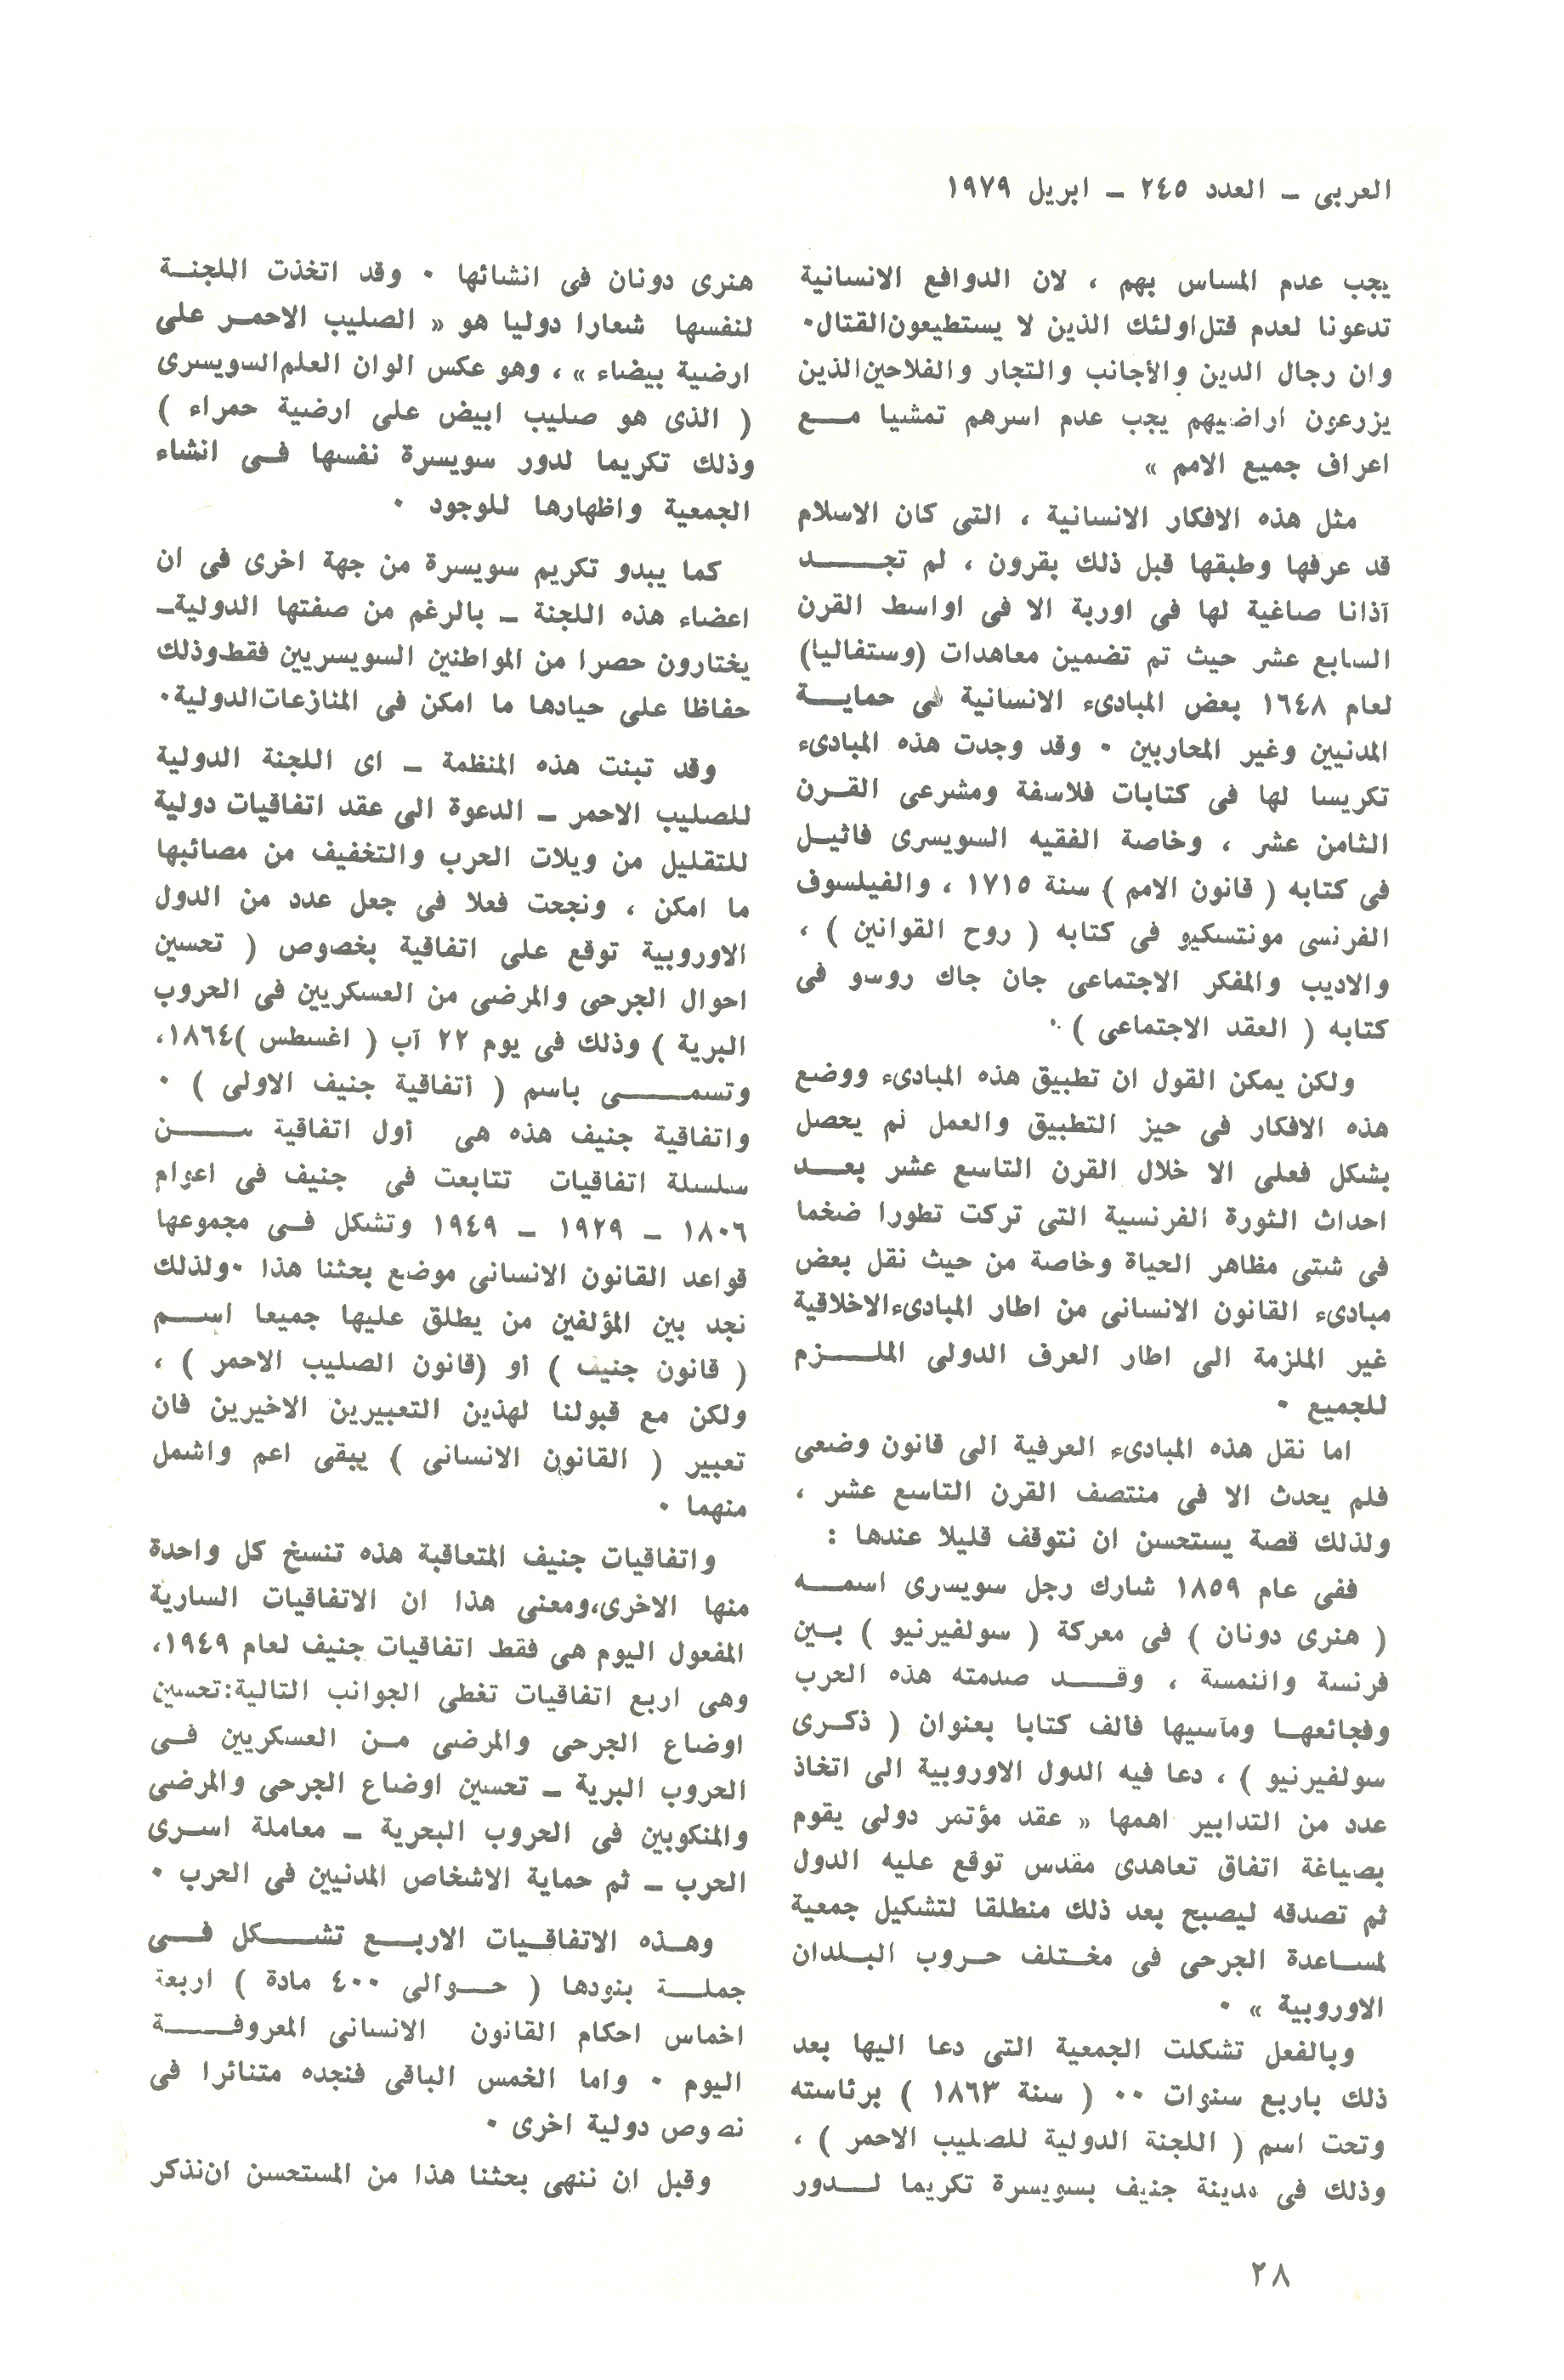 العربى – العدد ٢٤٥ – ابريل ١٩٧٩
يجب عدم المساس بهم ، لان الدوافع الانسانية
تدعونا لعدم قتل اولئك الذين لا يستطيعون القتال٠
وان رجال الدين والأجانب والتجار والفلاحين الذين
يزرعون اراضيهم يجب عدم اسرهم تمشيا مـــع
اعراف جميع الامم »
مثل هذه الافكار الانسانية ، التى كان الاسلام
قد عرفها وطبقها قبل ذلك بقرون ، لم تجـــــد
آذانا صاغية لها فى اوربة الا فى اواسط القرن
السابع عشر حيث تم تضمين معاهدات (وستفاليا)
لعام ١٦٤٨ بعض المبادىء الانسانية فى حمايـــة
المدنيين وغير المحاربين ٠ وقد وجدت هذه المبادىء
تكريسا لها فى كتابات فلاسفة ومشرعى القــرن
الثامن عشر ، وخاصة الفقيه السويسرى فاتيــل
فى كتابه ( قانون الامم ) سنة ١٧١٥ ، والفيلسوف
الفرنسى مونتسكيو فى كتابه ( روح القوانين ) ،
والاديب والمفكر الاجتماعى جان جاك روسو فى
كتابه ( العقد الاجتماعى ) ٠
ولكن يمكن القول ان تطبيق هذه المبادىء ووضع
هذه الافكار فى حيز التطبيق والعمل لم يحصل
بشكل فعلى الا خلال القرن التاسع عشر بعـــد
احداث الثورة الفرنسية التى تركت تطورا ضخما
فى شتى مظاهر الحياة وخاصة من حيث نقل بعض
مبادىء القانون الانسانى من اطار المبادىء الاخلاقية
غير الملزمة الى اطار العرف الدولى الملـــــزم
للجميع ٠
اما نقل هذه المبادىء العرفية الى قانون وضعى
فلم يحدث الا فى منتصف القرن التاسع عشر ،
ولذلك قصة يستحسن ان نتوقف قليلا عندها :
ففى عام ١٨٥٩ شارك رجل سويسرى اسمـــه
( هنرى دونان ) فى معركة ( سولفيرنيو ) بــين
فرنسة والنمسة ، وقـــد صدمته هذه الحرب
وفجائعهـا ومآسيها فألف كتابا بعنوان ( ذكــرى
سولفيرنيو ) ، دعا فيه الدول الاوروبية الى اتخاذ
عدد من التدابير اهمها « عقد مؤتمر دولى يقوم
بصياغة اتفاق تعاهدى مقدس توقع عليه الدول
ثم تصدقه ليصبح بعد ذلك منطلقا لتشكيل جمعية
لمســاعدة الجرحى فى مختلف حــروب البــلدان
الاوروبية » ٠
وبالفعل تشكلت الجمعية التى دعا اليها بعد
ذلك باربع سنوات ٠٠ ( سنة ١٨٦٣ ) برئاسته
وتحت اسم ( اللجنة الدولية للصليب الاحمر ) ،
وذلك فى مدينة جنيف بسويسرة تكريما لـــدور
هنرى دونان فى انشائها ٠ وقد اتخذت اللجنــة
لنفسها شعارا دوليا هو « الصليب الاحمــر على
ارضية بيضاء » ، وهو عكس الوان العلم السويسرى
( الذى هو صليب ابيض على ارضية حمراء )
وذلك تكريما لدور سويسرة نفسها فــى انشاء
الجمعية واظهارها للوجود ٠
كما يبدو تكريم سويسرة من جهة اخرى فى ان
اعضاء هذه اللجنة – بالرغم من صفتها الدولية–
يختارون حصرا من المواطنين السويسريين فقط وذلك
حفاظا على حيادها ما امكن فى المنازعات الدولية٠
وقد تبنت هذه المنظمة – اى اللجنة الدولية
للصليب الاحمر – الدعوة الى عقد اتفاقيات دولية
للتقليل من ويلات الحرب والتخفيف من مصائبها
ما امكن ، ونجحت فعلا فى جعل عدد من الدول
الاوروبية توقع على اتفاقية بخصوص ( تحسين
احوال الجرحى والمرضى من العسكريين فى الحروب
البرية ) وذلك فى يوم ٢٢ آب ( اغسطس )١٨٦٤،
وتسمـــــى باسم ( أتفاقية جنيف الاولى ) ٠
واتفاقية جنيف هذه هى أول اتفاقية ســــن
سلسلة اتفاقيات تتابعت فى جنيف فى اعوام
١٨٠٦ – ١٩٢٩ – ١٩٤٩ وتشكل فــى مجموعها
قواعد القانون الانسانى موضع بحثنا هذا ٠ولذلك
نجد بين المؤلفين من يطلق عليها جميعا اســـم
( قانون جنيف ) أو (قانون الصليب الاحمر ) ،
ولكن مع قبولنا لهذين التعبيرين الاخيرين فان
تعبير ( القانون الانسانى ) يبقى اعم واشمل
منهما ٠
واتفاقيات جنيف المتعاقبة هذه تنسخ كل واحدة
منها الاخرى،ومعنى هذا ان الاتفاقيات السارية
المفعول اليوم هى فقط اتفاقيات جنيف لعام ١٩٤٩،
وهى اربع اتفاقيات تغطى الجوانب التالية:تحسين
اوضاع الجرحى والمرضى مــن العسكريين فــى
الحروب البرية – تحسين اوضاع الجرحى والمرضى
والمنكوبين فى الحروب البحرية – معاملة اســرى
الحرب – ثم حماية الاشخاص المدنيين فى الحرب ٠
وهــذه الاتفاقــيات الاربــع تشـــكل فـــى
جملـــة بنودها ( حــوالى ٤٠٠ مادة ) اربعة
اخماس احكام القانون الانسانى المعروفــــة
اليوم ٠ واما الخمس الباقى فنجده متناثرا فى
نصوص دولية اخرى ٠
وقبل ان ننهى بحثنا هذا من المستحسن ان نذكر
٢٨